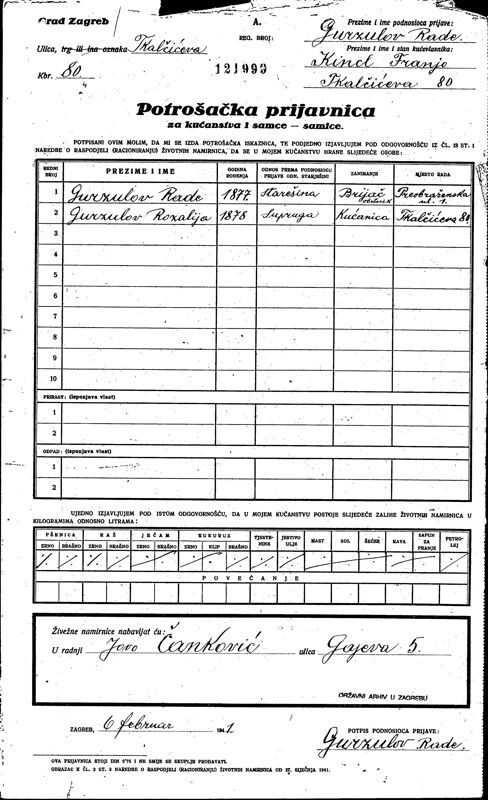 Grad Zagreb
A.
REG. BROJ:
121993
Prezime i ime podnosioca prijave:
Gurzulov Rade.
Ulica, trg ili ina oznaka Tkalčićeva
Prezime i ime i stan kućevlasnika:
Kincl Franjo
Kbr. 80.
Tkalčićeva 80
Potrošačka prijavnica
za kućanstva i samce – samice.
POTPISANI OVIM MOLIM, DA MI SE IZDA POTROŠAČKA ISKAZNICA, TE PODJEDNO IZJAVLJUJEM POD ODGOVORNOŠĆU IZ ČL. 18 ST. 1
NAREDBE O RASPODJELI (RACIONIRANJU) ŽIVOTNIH NAMIRNICA, DA SE U MOJEM KUĆANSTVU HRANE SLIJEDEĆE OSOBE:
REDNI BROJ PREZIME I IME GODINA ROĐENJA ODNOS PREMA PODNOSIOCU PRIJAVE ODN. STARJEŠINI ZANIMANJE MJESTO RADA
1 Gurzulov Rade 1877. starešina Brijač obrtnik Preobraženska ul. 1.
2 Gurzulov Rozalija 1878 supruga Kućanica Tkalčićeva 80.
3
4
5
6
7
8
9
10
PRIRAST: (ispunjava vlast)
1
2
OTPAD: (ispunjava vlast)
1
2
UJEDNO IZJAVLJUJEM POD ISTOM ODGOVORNOŠĆU, DA U MOJEM KUĆANSTVU POSTOJE SLIJEDEĆE ZALIHE ŽIVOTNIH NAMIRNICA U
KILOGRAMIMA ODNOSNO LITRAMA:
PŠENICA RAŽ JEČAM KUKURUZ TJESTENINE JESTIVO ULJE MAST SOL ŠEĆER KAVA SAPUN ZA PRANJE PETROLEJ
ZRNO BRAŠNO ZRNO BRAŠNO ZRNO BRAŠNO ZRNO KLIP BRAŠNO
POVEĆANJE
Živežne namirnice nabavljat ću:
U radnji Jovo Čanković ulica Gajeva 5.
DRŽAVNI ARHIV U ZAGREBU
ZAGREB, 6 februar 1941.
POTPIS PODNOSIOCA PRIJAVE:
Gurzulov Rade.
OVA PRIJAVNICA STOJI DIN 0'75 I NE SMIJE SE SKUPLJE PRODAVATI.
OBRAZAC K ČL. 2 ST. 3 NAREDBE O RASPODJELI (RACIONIRANJU) ŽIVOTNIH NAMIRNICA OD 17. SIJEČNJA 1941.